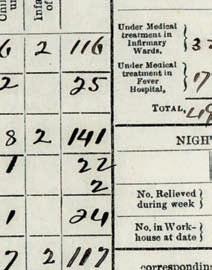 6 2 116
2 25
8 2 141
1 22
2
1 24
7 2 117
Under Medical
treatment in
Infirmary
Wards.
Under Medical
treatment in
Fever
Hospital,
TOTAL,
NIGH
No. Relieved
during week
No. in Work-
house at date
corresponding